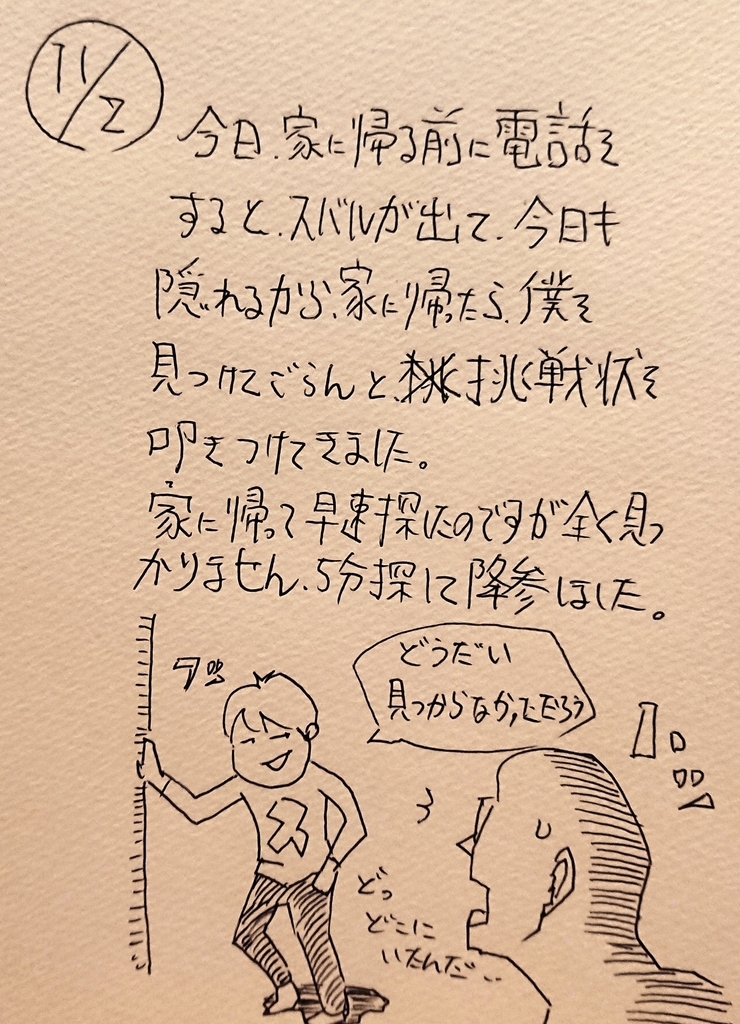 11/2
今日、家に帰る前に電話を
すると、スバルが出て、今日も
隠れるから、家に帰ったら、僕を
見つけてごらんと、挑戦状を
叩きつけてきました。
家に帰って早速探したのですが全く見つ
かりません、5分探して降参しました。
どうだい
見つからなかっただろう
ス
どっ
どこに
いたんだ…